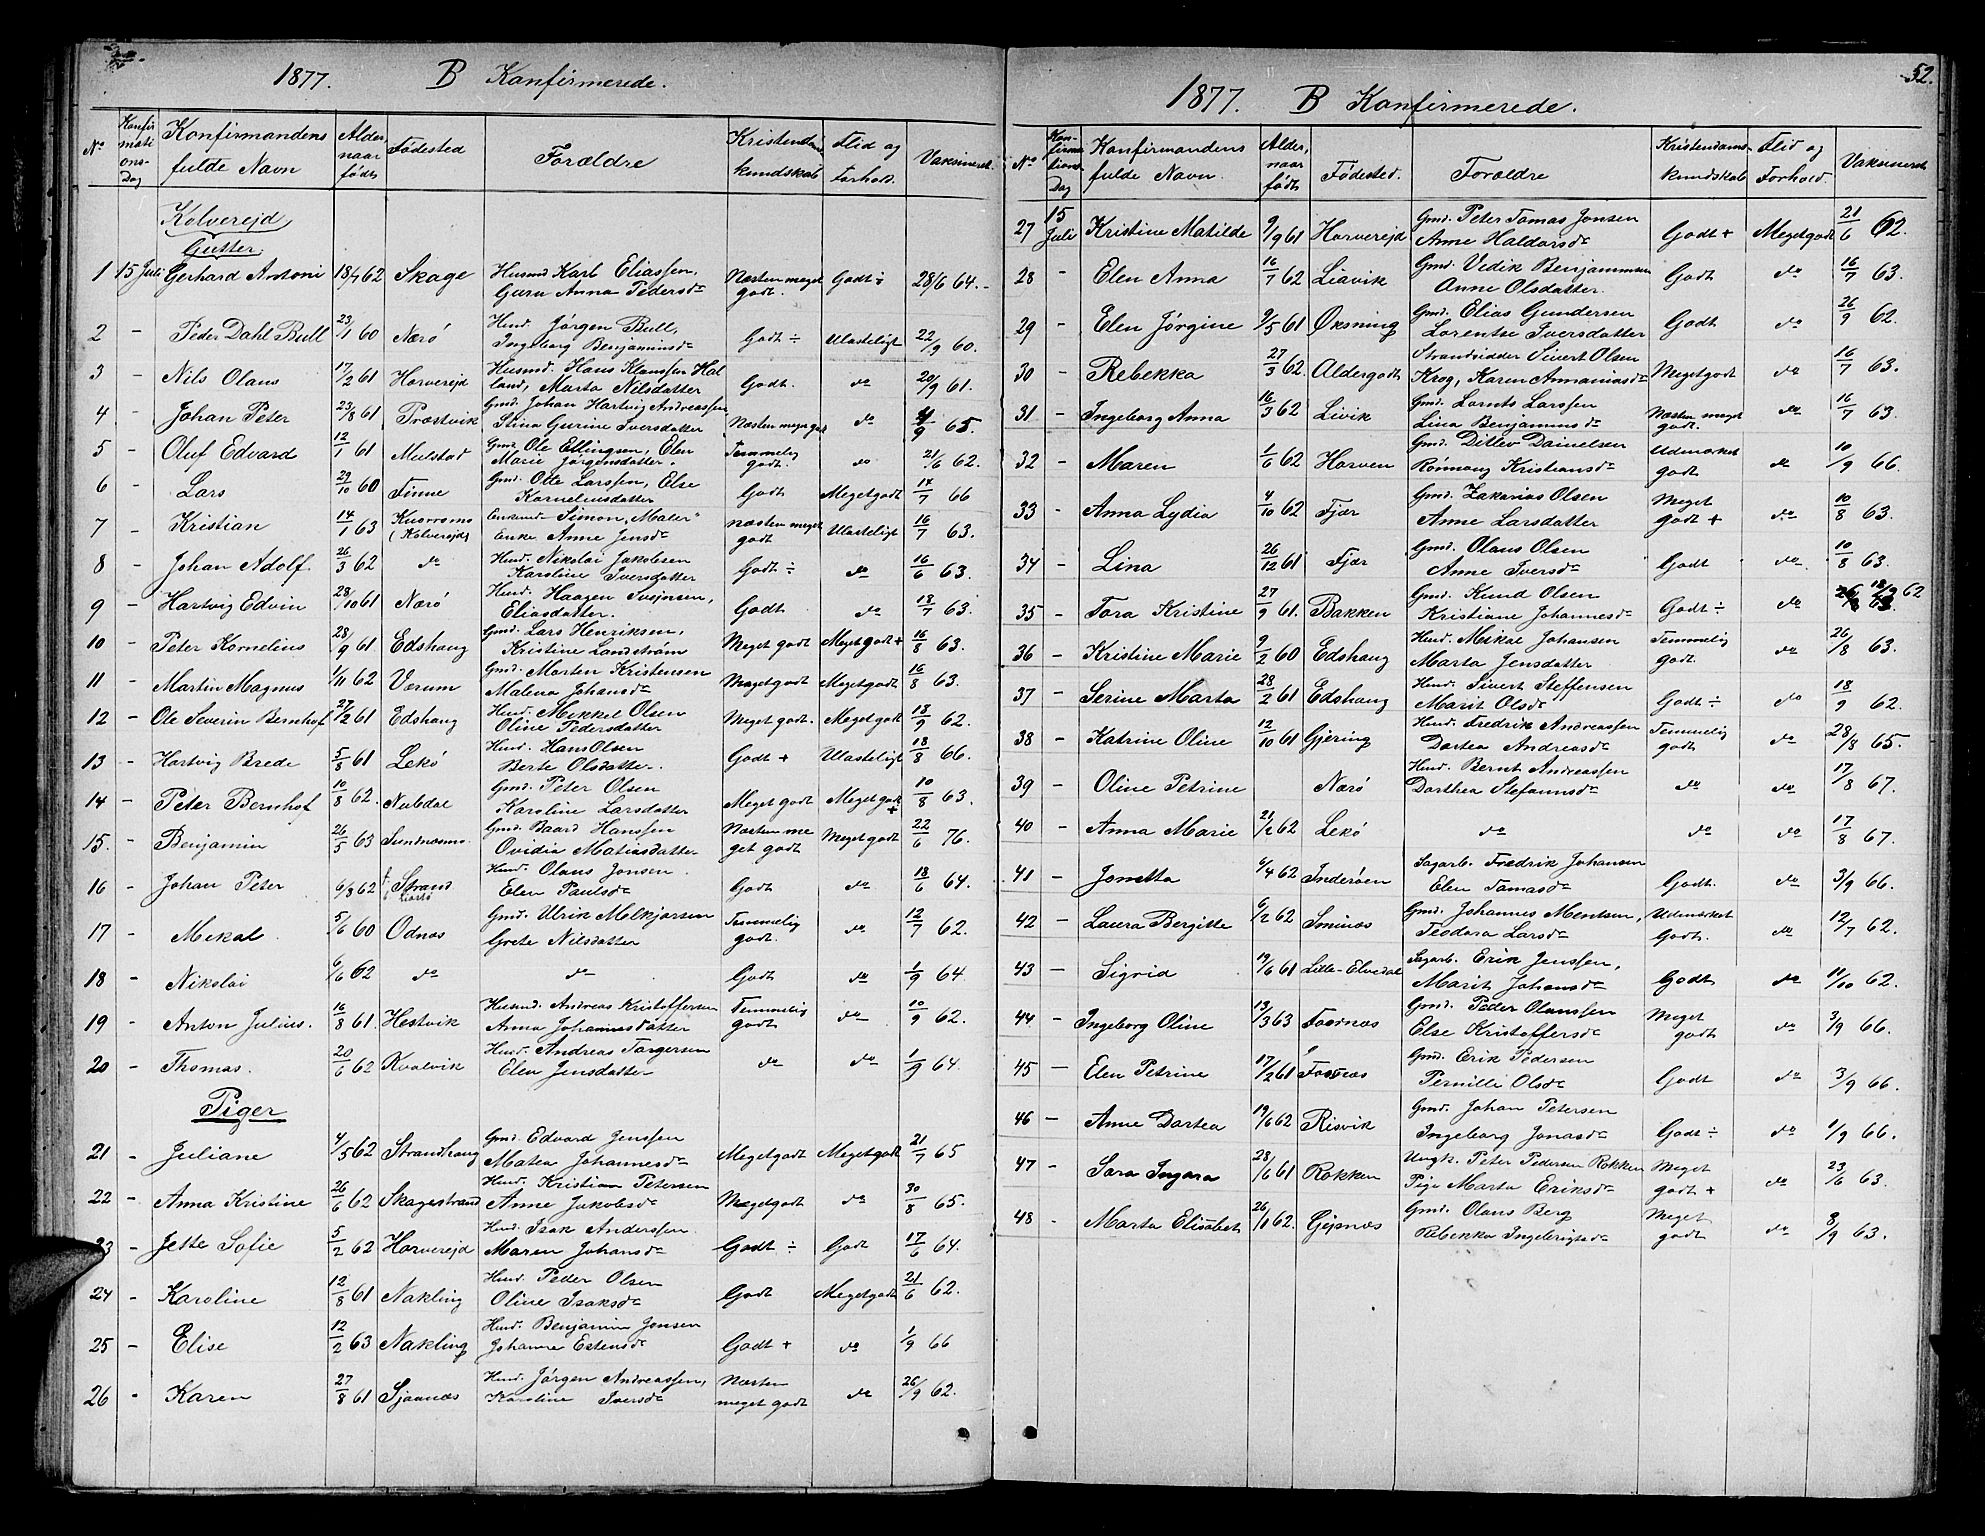 1877. B Konfirmerede.
No Konfirmationsdag Konfirmandens fulde Navn Alder naar født Fødested Forældre Kristendomskundskab Flid og Forhold. Vaksineret
Kolverejd
Gutter
1 15 Juli Gerhard Antoni 18/4 62 Skage Husmd Karl Eliassen, Gurn Anna Pedersdr Næsten meget godt. Godt ÷ 28/6 64.
2 - Peder Dahl Bull 23/1 60 Nærö Hmd. Jørgen Bull, Ingeborg Benjaminsdr Godt ÷ Ulasteligt 22/9 60.
3 - Nils Olaus 17/2 61 Horverejd Husmd. Hans Klausen Halland, Marta Nilsdatter Godt. do 20/9 61.
4 - Johan Peter 23/8 61 Træstvik Gmd. Johan Hartvig Andreassen Stina Gurine Iversdatter Næsten meget godt do /9 65.
5 - Oluf Edvard 12/7 61 Mulstad Gmd. Ole Ellingsen, Elen Marie Jørgensdatter. Temmelig godt. do 21/6 62.
6 - Lars 29/10 60 Finne Gmd. Otte Larssen, Else Korneliusdatter Godt Megetgodt 14/7 66
7 - Kristian 14/1 63 (Kolverejd) Simon "Maler" Enke Anne Jensdr næsten meget godt Ulasteligt 16/7 63.
8 - Johan Adolf. 26/3 62 do Hmd. Nikolai Jakobsen Karoline Iversdatter Godt ÷ do 16/6 63.
9 - Hartvig Edvin 28/10 61 Nærö Hmd. Haagen Svejnsen, Eliasdatter. Godt do 18/7 63.
10 - Peter Kornelius 28/9 61 Edshaug Gmd. Lars Henriksen, Kristine Landstrøm Meget godt Megetgodt + 16/8 63.
11 - Martin Magnus 1/11 62 Verum Gmd. Morten Kristensen Malena Johansdr Megetgodt Megetgodt 16/8 63.
12 - Ole Severin Bernhof 27/2 61 Edshaug Hmd. Mikkel Olsen Oline Pedersdatter Meget godt. Meget godt 18/9 62.
13 - Hartvig Brede 5/8 61 Lekö Hmd. Hans Olsen Berte Olsdatter. Godt + Ulasteligt 18/8 66.
14 - Peter Bernhof 10/8 62. Nubdal Gmd. Peter Olsen Karoline Larsdatter Meget godt Meget godt + 10/8 63.
15. - Benjamin 26/5 63 Sundnæsm. Gmd. Baard Hanssen Ovidia Matiasdatter Næsten meget godt Megetgodt 22/6 76.
16 - Johan Peter 6/3 62 Strand Hmd. Olaus Jonsen. Elen Paulsdr Godt do 18/6 64.
17 - Mekal 5/6 60 Odnæs Gmd. Ulrik Melkjorsen Grete Nilsdatter Temmelig godt. do 12/7 62.
18 - Nikolai 6/6 62 do do Godt do 1/9 64.
19 - Anton Julius. 16/8 61. Hestvik Husmd. Andreas Kristoffersen Anna Johannesdatter Temmelig godt do 10/9 62.
20 - Thomas. 20/6 62 Kvalvik Hmd. Andreas Torgersen Elen Jensdatter do do 1/9 64.
Piger
21 - Juliane 4/5 62 Strandhaug Gmd. Edvard Jenssen Matea Johannesdr Megetgodt Megetgodt 21/7 65
22 - Anna Kristine 26/6 62 Skagestrand Hmd. Kristian Petersen Anne Jakobsdr Megetgodt do 30/8 65.
23 - Jette Sofie 5/2 62 Horverejd Hmd. Isak Anderssen. Maren Johansdr Godt ÷ Godt 17/6 64.
24 - Karoline 12/8 61 Nakling Hmd. Peder Olsen Oline Isaksdr Godt Megetgodt 21/6 62.
25 - Elise 12/2 63 Nakling Hmd. Benjamin Jonsen Johanna Estensdr Godt + do 1/9 66
26 - Karen 27/8 61 Sjaanæs Hmd. Jørgen Andreassen, Karoline Iversdr Næsten meget godt do 26/9 62.
52.
1877. B Konfirmerede.
No Konfirmationsdag Konfirmandens fulde Navn. Alder, naar født Fødested. Forældre Kristendomskundskab Flid og Forhold. Vaksineret
27 15 Juli Kristine Matilde 9/9 61 Horverejd Gmd. Peter Tomas Jonsen Anne Haldorsdr Godt + Megetgodt 21/6 62.
28 - Elen Anna 16/7 62 Liavik Gmd. Vedik Benjaminsen Anne Olsdatter. Godt do 16/7 63.
29 - Elen Jørgine 9/5 61 Øksning Gmd. Elias Gundersen Lorentse Iversdatter Godt do 26/9 62.
30 - Rebekka 27/3 62. Aldergodt Strandsidder Sivert Olsen Krog, Karen Annaniasdr Megetgodt do 16/7 63.
31 - Ingeborg Anna 16/3 62 Livik Gmd. Lornts Larssen Lina Benjaminsdr Næsten meget godt. do 16/7 63.
32 - Maren 1/6 62 Horven Gmd. Ditlev Dainelsen Rönnaug Kristiansdr Udmærket godt do 10/9 66.
33 - Anna Lydia 4/10 62 Fjær Gmd. Zakarias Olsen Anne Larsdatter Meget godt + do 10/8 63.
34 - Lina 26/12 61 Fjær Gmd. Olaus Olsen Anne Iversdr Godt do. 10/8 63.
35 - Tora Kristine 27/9 61. Bakken Gmd. Knud Olsen Kristiane Johannesdr Godt ÷ do 18/9 62
36 - Kristine Marie 9/2 60 Edshaug Hmd. Mikal Johansen Marta Jensdatter Temmelig godt. do 26/8 63.
37 - Serine Marta 28/2 61 Edshaug Hmd. Sivert Steffensen Marit Olsdr Godt ÷ do 18/9 62.
38 - Katrine Oline 12/10 61 Gjering Hmd. Fredrik Andreassen Dortea Andreasdr Temmelig godt do 28/8 65.
39 - Oline Petrine Nærö Hmd. Bernt Andreassen Dorthea Stefansdr do do 17/8 67.
40 - Anna Marie 21/2 62 Lekö do do do 17/8 67.
41 - Jonetta 6/4 62 Inderøen Sagarb. Fredrik Johansen Elen Tomasdr Godt. do 3/9 66.
42 - Laura Bergitte 6/2 62 Sminæs Gmd. Johannes Mentsen, Teodora Larsdr Udmærket Godt. do 12/7 62.
43 - Sigrid 19/6 61 Lille-Elvedal Sagarb. Erik Jenssen, Marit Johansdr Godt do 11/10 62.
44 - Ingeborg Oline 13/3 63 Foosnæs Gmd. Peder Olaussen Else Kristoffersdr Meget godt do 3/9 66.
45 - Elen Petrine 17/2 61 Fosnæs Gmd. Erik Pedersen Pernille Olsdr Godt do 3/9 66.
46 - Anne Dortea 19/6 62 Risvik Gmd. Johan Petersen Ingeborg Jonasdr Godt ÷ do 1/9 66.
47 - Sara Ingara 28/6 61 Rokken Ungk. Peter Pedersen Rokken Pige Marta Eriksdr Meget godt + do 23/6 63.
48 - Marta Elisabet 26/1 62. Gejsnæs Gmd. Olaus Berg Rebekka Ingebrigtsdr Meget godt do 8/9 63.